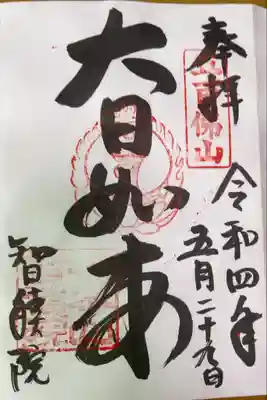 奉拝
令和四年
五月二十九日
大日如来
智積院